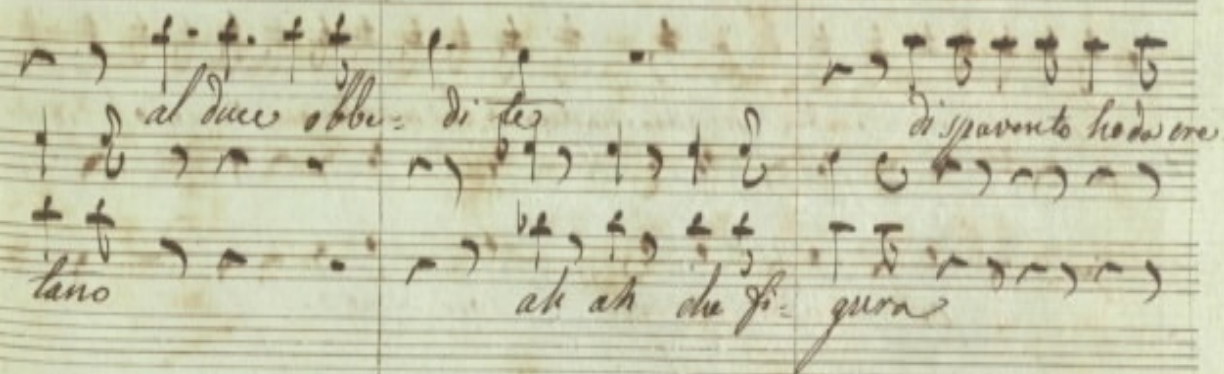 al duce obbe= di te
di spavento ho da cre
tano
ah ah che fi= gura